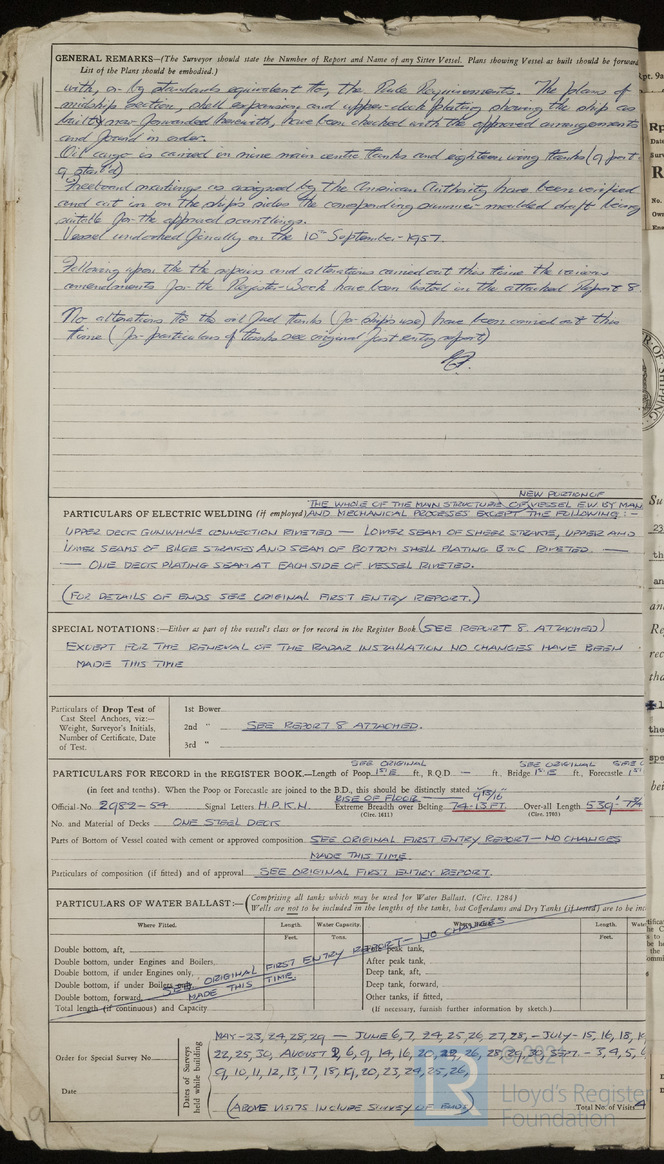 GENERAL REMARKS—(The Surveyor should state the Number of Report and Name of any Sister Vessel. Plans showing Vessel as built should be forward
List of the Plans should be embodied.)
with, or by standards equivalent to, the Rule Requirements. The plans of
midship section, shell expansion and upper deck plating showing the ship as
built, now forwarded herewith, have been checked with the approved arrangements
and found in order.
Oil cargo is carried in nine main centre tanks and eighteen wing tanks (9 port
9 star'd)
Freeboard markings as assigned by the American Authority have been verified
and cut in on the ship's sides the corresponding summer moulded draft being
suitable for the approved scantlings.
Vessel undocked finally on the 10th September 1957.
Following upon the the repairs and alterations carried out this time the various
amendments for the Register Book have been listed in the attached Report 8
No alterations to the oil fuel tanks (for ship's use) have been carried out this
time (for particulars of tanks see original first entry report)
NEW PORTION OF
THE WHOLE OF THE MAIN STRUCTURE OF VESSEL EW BY MAN
PARTICULARS OF ELECTRIC WELDING (if employed) AND MECHANICAL PROCESSES EXCEPT THE FOLLOWING :-
UPPER DECK GUNWHALE CONNECTION RIVETED — LOWER SEAM OF SHEER STRAKE, UPPER AND
LOWER SEAMS OF BILGE STRAKES AND SEAM OF BOTTOM SHELL PLATING B to C RIVETED. —
— ONE DECK PLATING SEAM AT EACH SIDE OF VESSEL RIVETED.
(FOR DETAILS OF ENDS SEE ORIGINAL FIRST ENTRY REPORT.)
SPECIAL NOTATIONS:—Either as part of the vessel's class or for record in the Register Book (SEE REPORT 8. ATTACHED)
EXCEPT FOR THE RENEWAL OF THE RADAR INSTALLATION NO CHANGES HAVE BEEN
MADE THIS TIME
Particulars of Drop Test of
Cast Steel Anchors, viz:—
Weight, Surveyor's Initials,
Number of Certificate, Date
of Test.
1st Bower
2nd " SEE REPORT 8 ATTACHED.
3rd "
SEE ORIGINAL SEE ORIGINAL SEE O
PARTICULARS FOR RECORD in the REGISTER BOOK.—Length of Poop 1st E ft., R.Q.D. — ft. Bridge 1st E ft., Forecastle 1st
(in feet and tenths). When the Poop or Forecastle are joined to the B.D., this should be distinctly stated
RISE OF FLOOR
Official No. 2982-54 Signal Letters H.P.K.N. Extreme Breadth over Belting 74.13 FT. Over-all Length 539'-7¾
(Circ. 1611) (Circ. 1703)
No. and Material of Decks ONE STEEL DECK
Parts of Bottom of Vessel coated with cement or approved composition SEE ORIGINAL FIRST ENTRY REPORT — NO CHANGES
MADE THIS TIME.
Particulars of composition (if fitted) and of approval SEE ORIGINAL FIRST ENTRY REPORT.
PARTICULARS OF WATER BALLAST:— (Comprising all tanks which may be used for Water Ballast. (Circ. 1284)
Wells are not to be included in the lengths of the tanks, but Cofferdams and Dry Tanks (if tested) are to be inc
Where Fitted. Length. Water Capacity. Where Length. Wate
Feet. Tons. Feet.
Double bottom, aft,
Double bottom, under Engines and Boilers,
Double bottom, if under Engines only,
Double bottom, if under Boilers only,
Double bottom, forward,
Total length (if continuous) and Capacity
peak tank,
After peak tank,
Deep tank, aft,
Deep tank, forward,
Other tanks, if fitted,
(If necessary, furnish further information by sketch.)
SEE ORIGINAL FIRST ENTRY REPORT — NO CHANGES
MADE THIS TIME.
Order for Special Survey No
Date
Dates of Surveys held while building
MAY - 23, 24, 28, 29 — JUNE 6, 7, 24, 25, 26, 27, 28, - JULY - 15, 16, 18, 19
22, 25, 30, AUGUST 2, 6, 9, 14, 16, 20, 26, 28, 29, 30, SEPT. - 3, 4, 5, 6
9, 10, 11, 12, 13, 17, 18, 19, 20, 23, 24, 25, 26,
(ABOVE VISITS INCLUDE SURVEY OF ENDS)
Total No. of Visits 4
© 2021
LR
Lloyd's Register
Foundation
19